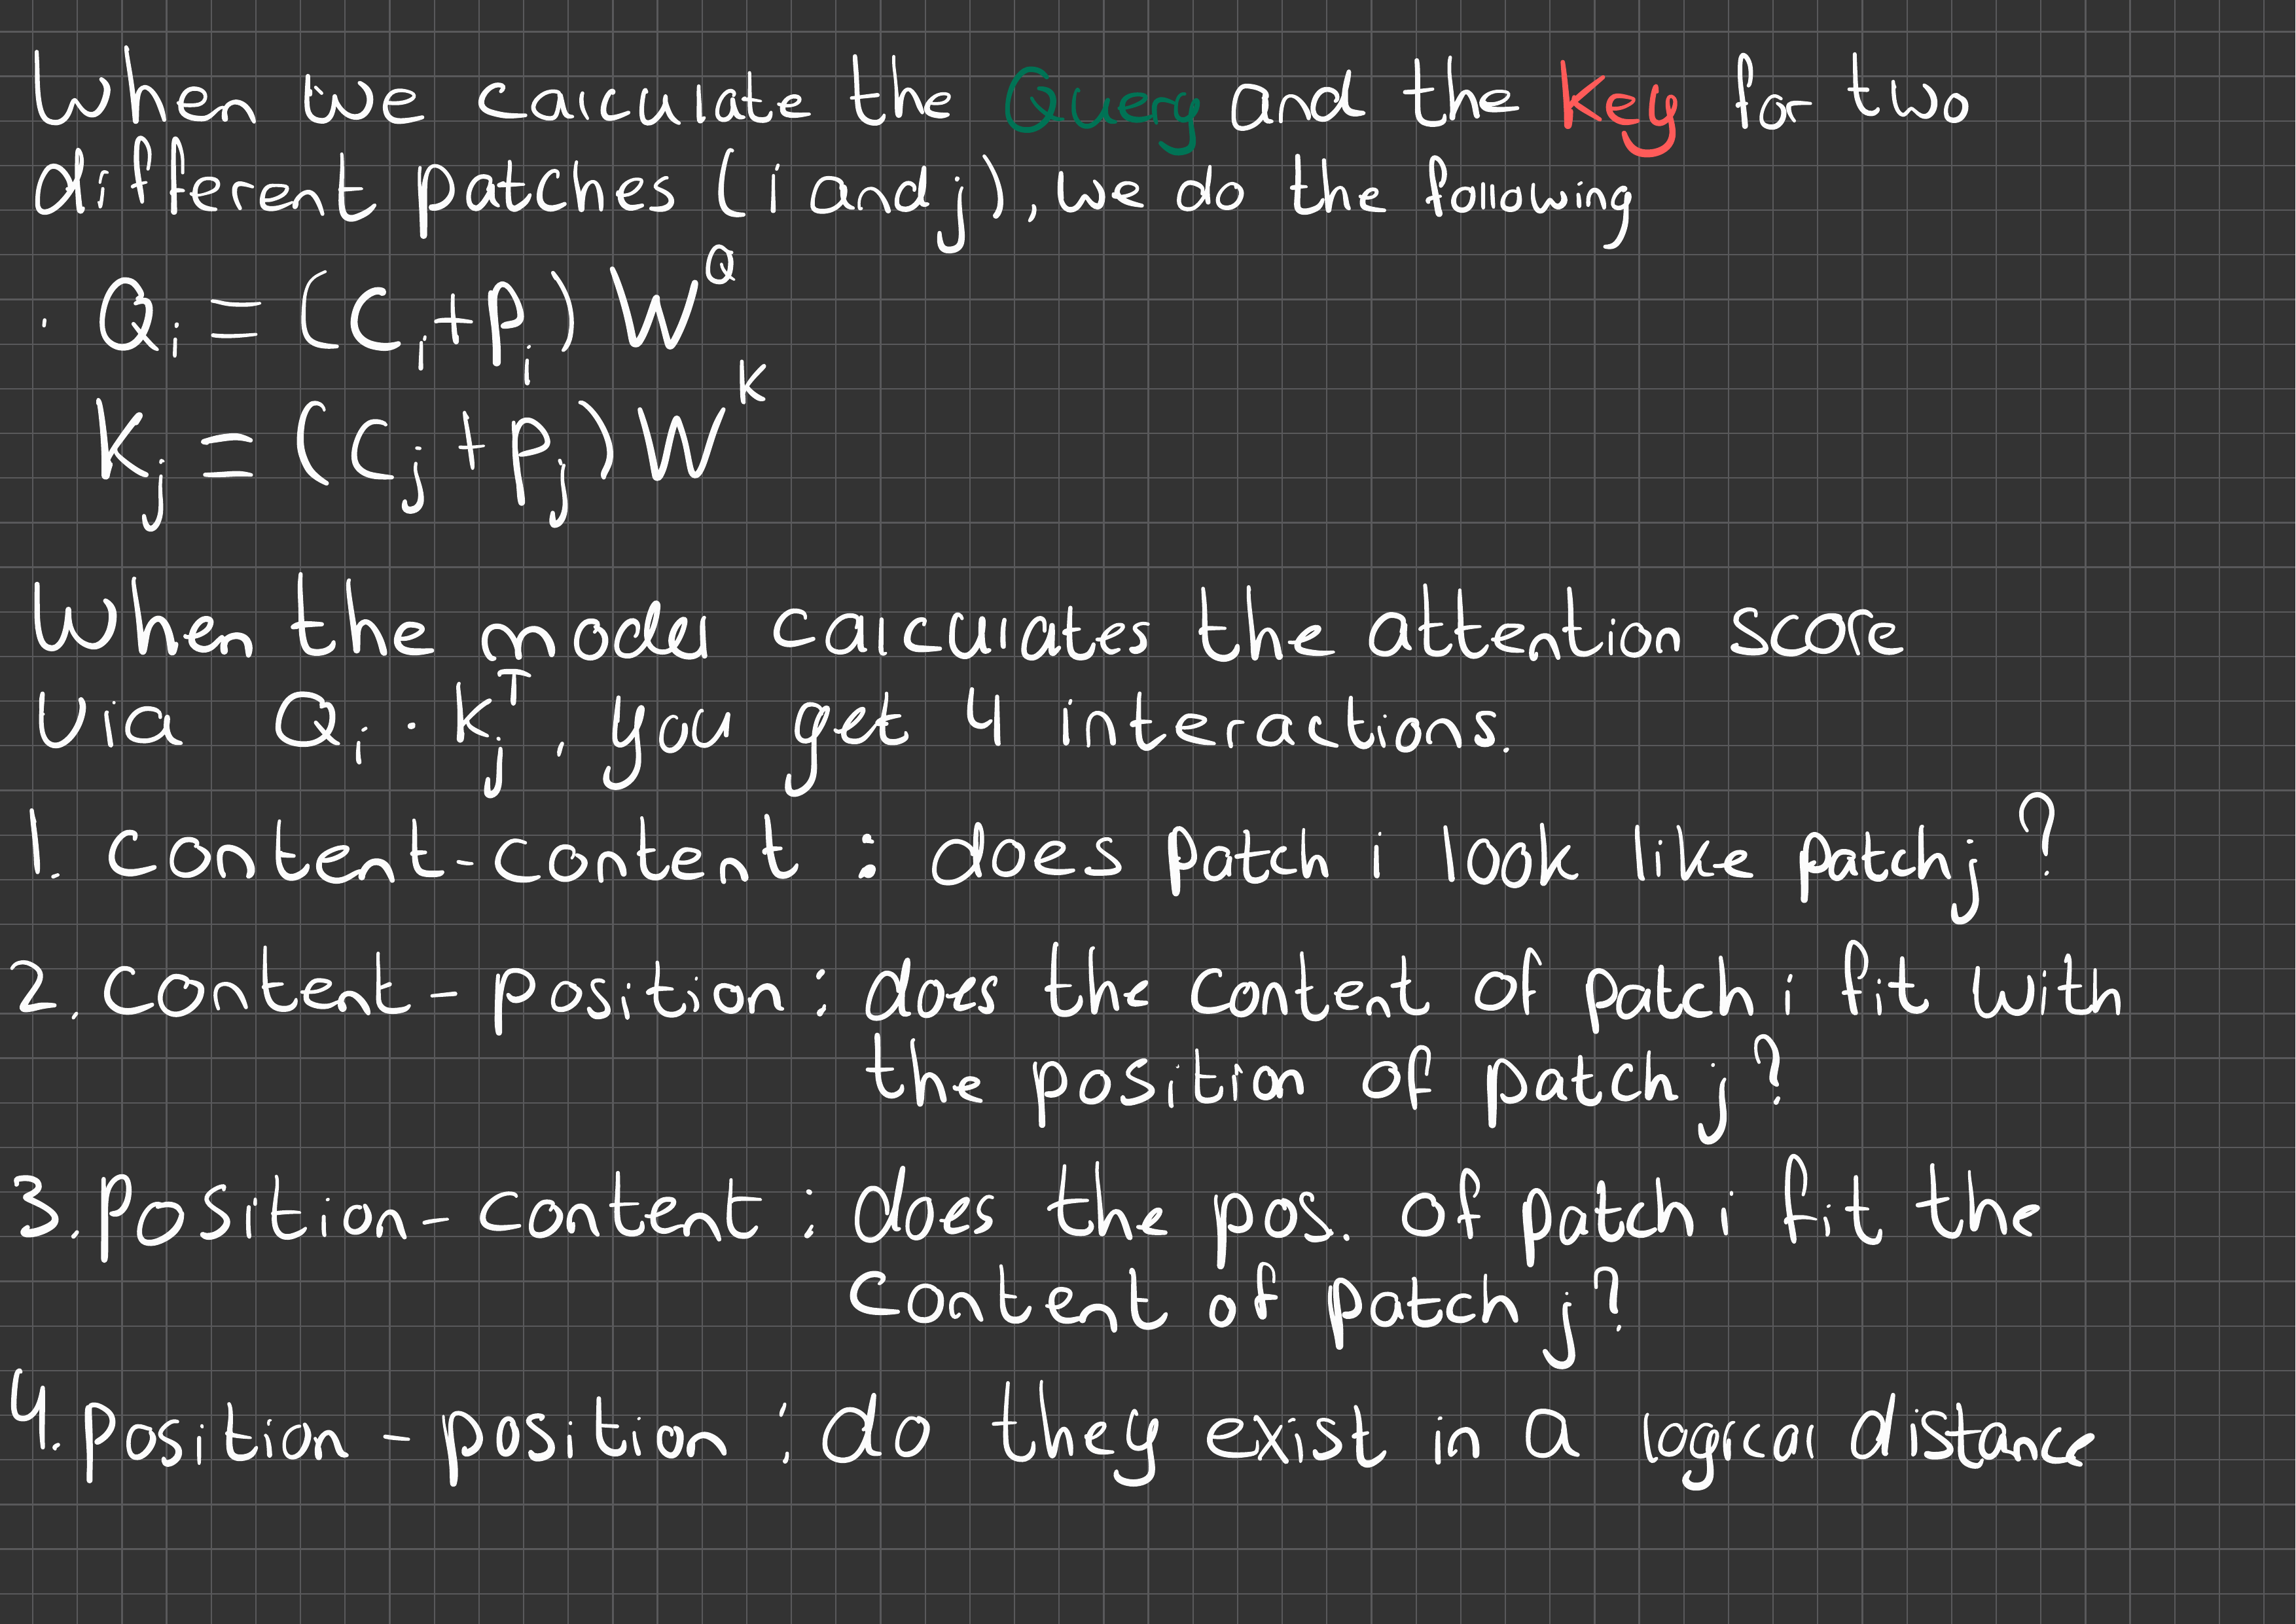 When we calculate the Query and the Key for two
different patches (i and j), we do the following
· Qᵢ = (Cᵢ + Pᵢ) W^Q
Kⱼ = (Cⱼ + Pⱼ) W^K
When the model calculates the attention score
via Qᵢ · Kⱼ^T, you get 4 interactions.
1. Content-content : does patch i look like patch j ?
2. Content - position : does the content of patch i fit with
the position of patch j ?
3. Position - content : does the pos. of patch i fit the
content of patch j ?
4. Position - position : do they exist in a logical distance